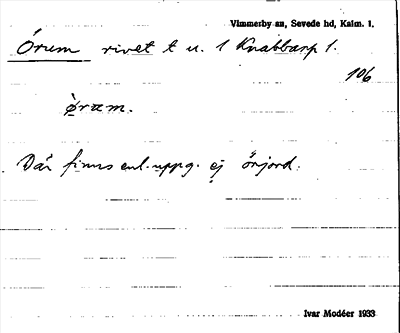 Vimmerby sn, Sevede hd, Kalm. l.
Örum rivet t u. 1 Knabbarp 1.
106
ø̀ram.
Där finns enl. uppg. ej örjord.
Ivar Modéer 1933